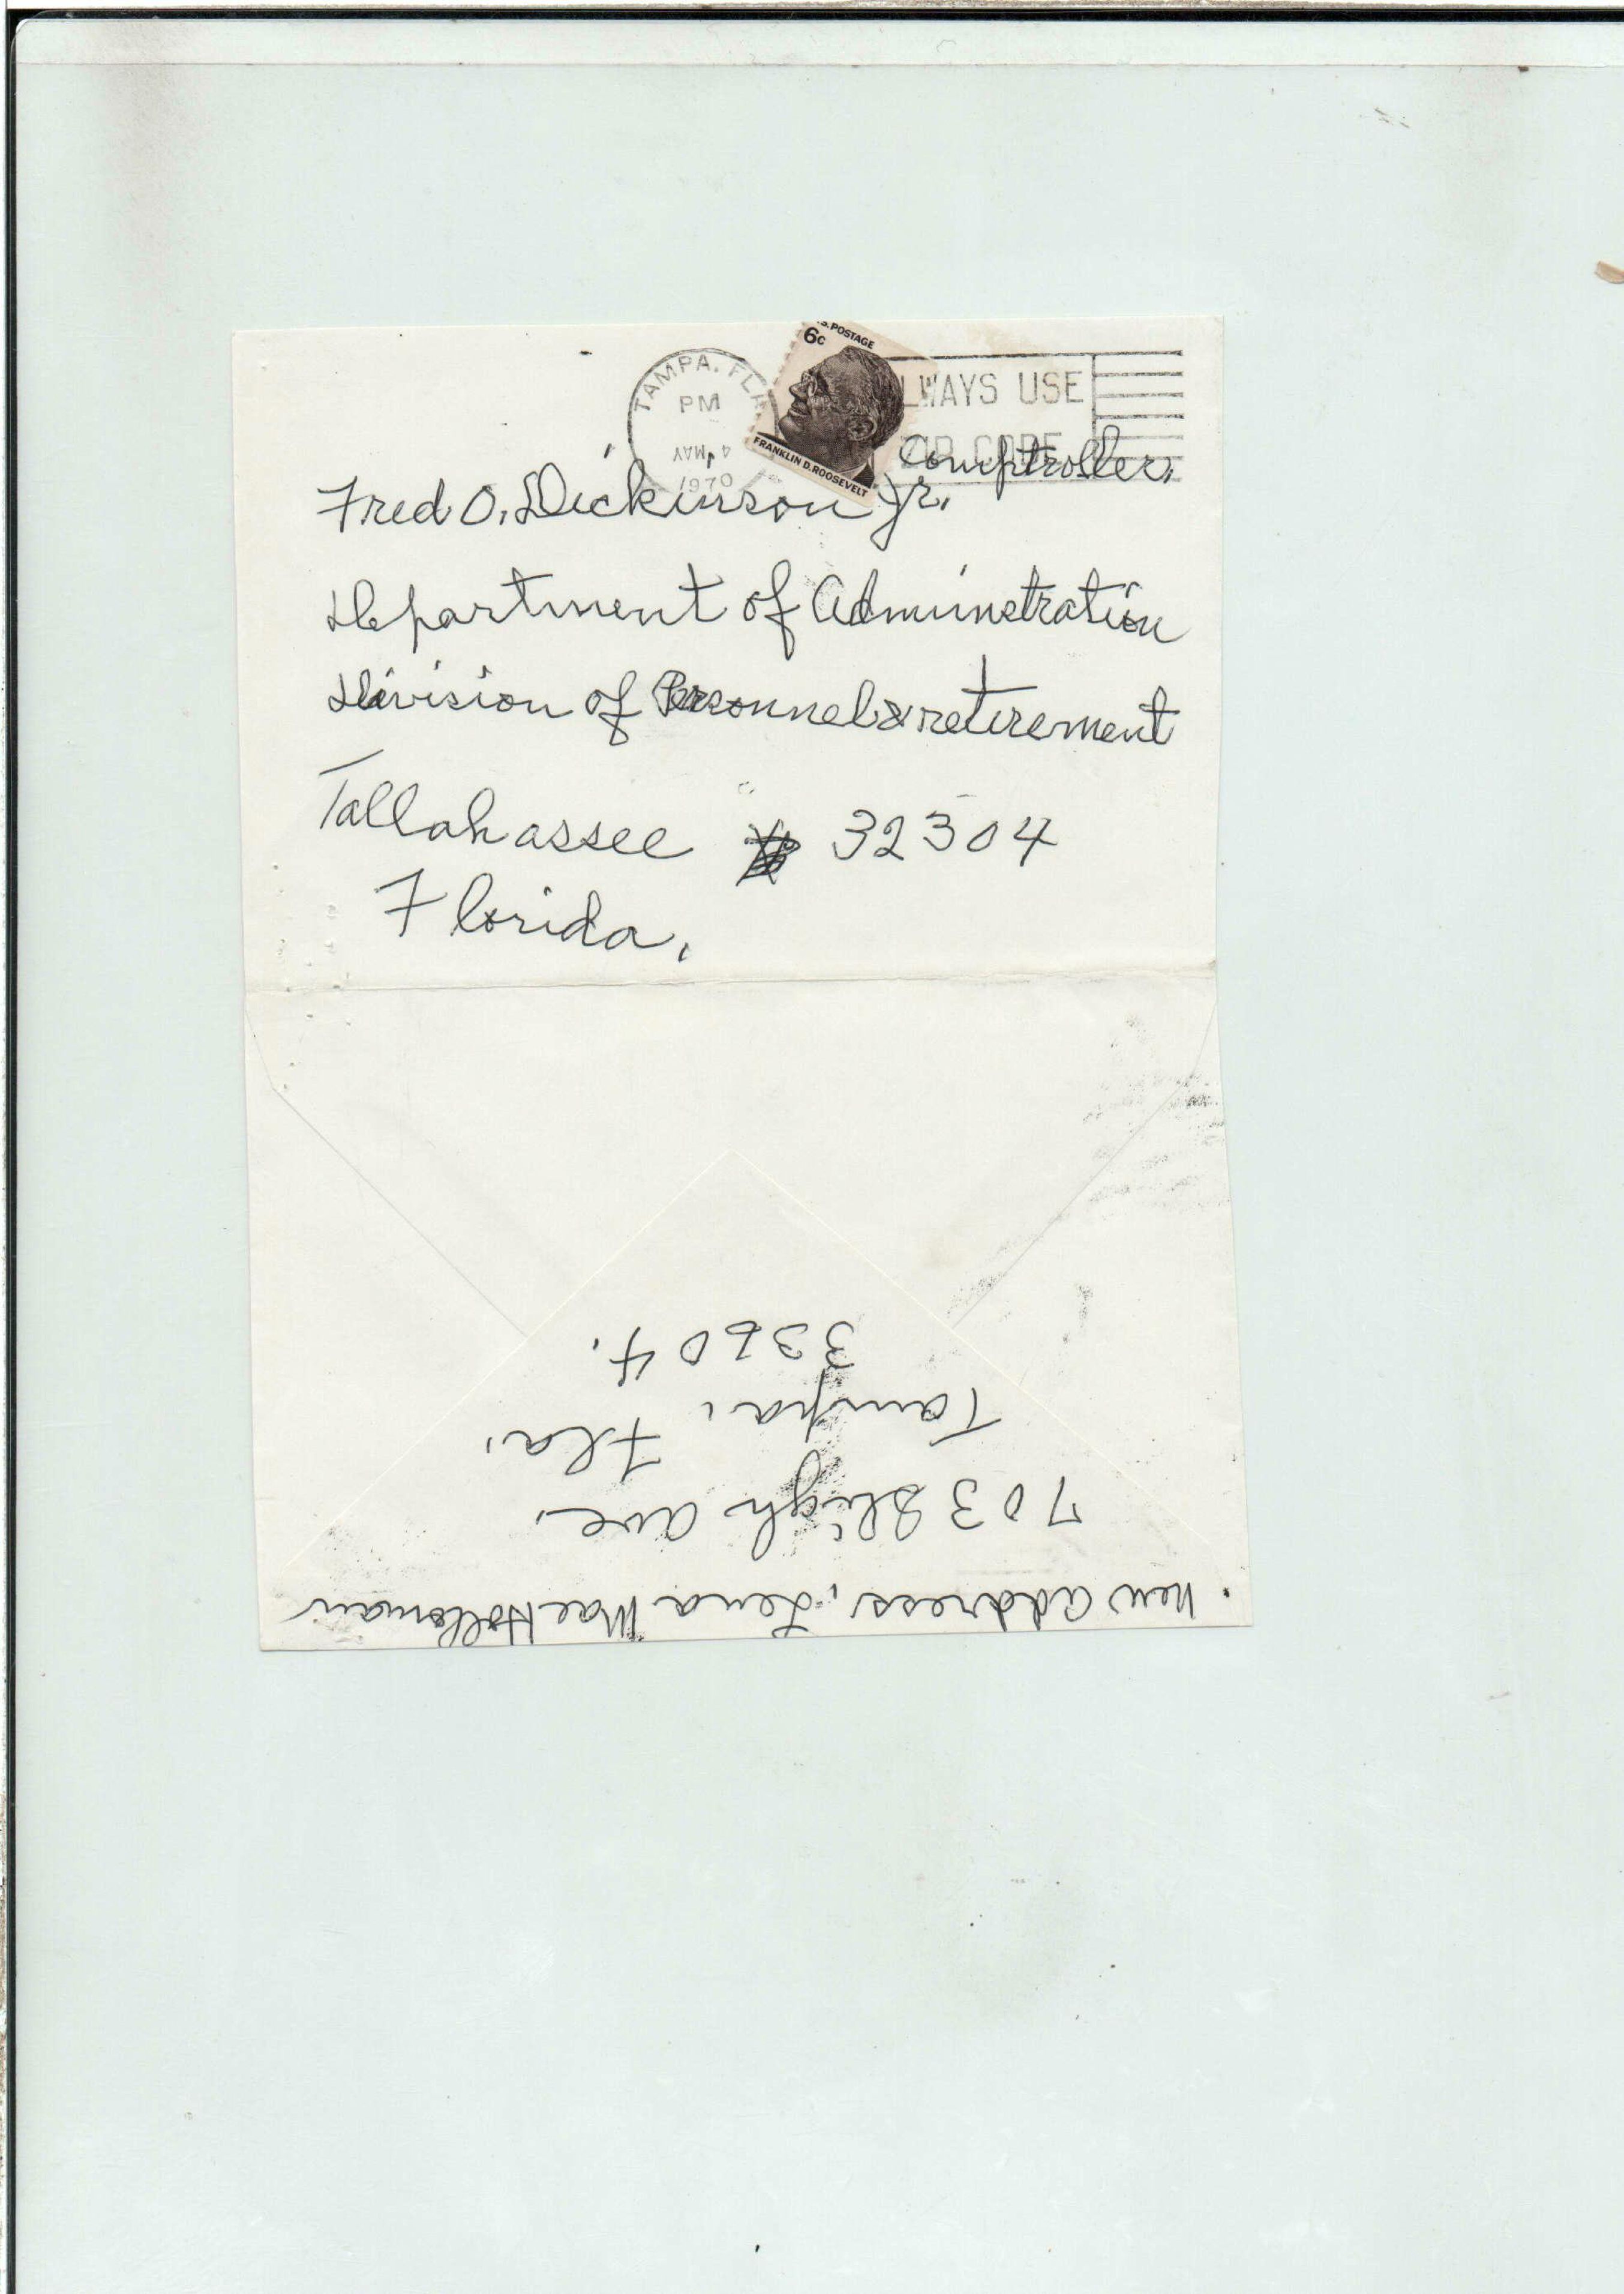 TAMPA, FLA
PM
4 MAY
1970
S. POSTAGE
6c
FRANKLIN D. ROOSEVELT
LWAYS USE
ZIP CODE
Comptroller.
Fred O. Dickinson Jr.
Department of Adminstration
Division of Personnel & retirement
Tallahassee 32304
Florida.
New address, Lena Mae Holloman
703 Sligh ave.
Tampa, Fla.
33604.